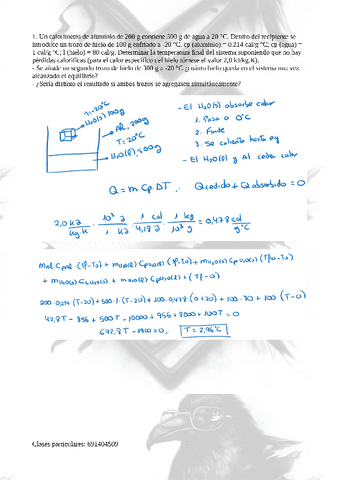 1. Un calorímetro de aluminio de 200 g contiene 500 g de agua a 20 °C. Dentro del recipiente se
introduce un trozo de hielo de 100 g enfriado a -20 °C. cp (aluminio) = 0.214 cal/g °C; cp (agua) =
1 cal/g °C; l (hielo) = 80 cal/g. Determinar la temperatura final del sistema suponiendo que no hay
pérdidas caloríficas (para el calor específico del hielo tómese el valor 2,0 kJ/kg.K).
- Se añade un segundo trozo de hielo de 300 g a -20 °C ¿cuánto hielo queda en el sistema una vez
alcanzado el equilibrio?
- ¿Sería distinto el resultado si ambos trozos se agregasen simultáneamente?
T=-20°C
H2O(s) 100g
AL, 200g
T=20°C
H2O(l), 500g
- El H2O(s) absorbe calor
1. Pasa a 0°C
2. Funde
3. Se calienta hasta eq
- El H2O(l) y Al ceden calor
Q = m Cp·DT ∴ Qcedido + Qabsorbido = 0
2,0 kJ/kg K · 10³ J/1 kJ · 1 cal/4,18 J · 1 kg/10³ g = 0,478 cal/g°C
200·0,214·(T-20)+500·1·(T-20)+100·0,478·(0+20)+100·80+100 (T-0)
42,8T - 856 + 500T - 10000 + 956 + 8000 + 100T = 0
642,8T - 1900 = 0, T = 2,96°C
Clases particulares: 691404509